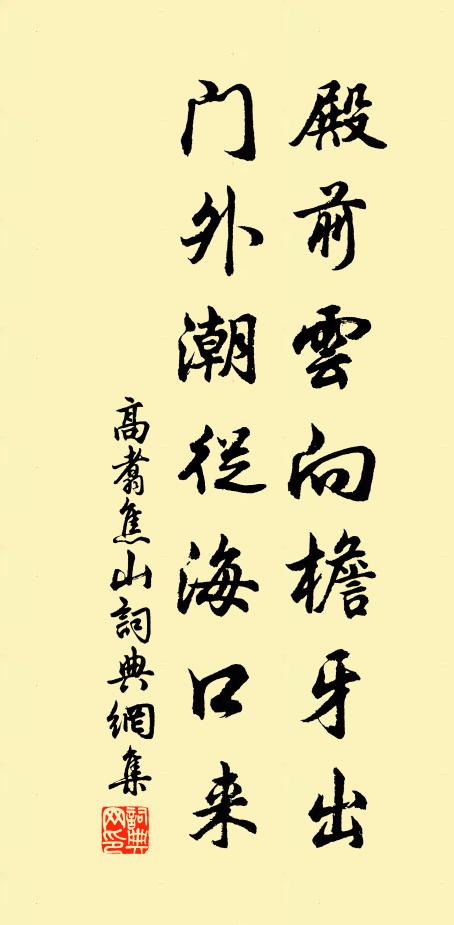 殿前雲向檐牙出
门外潮從海口来
高翥焦山詞典網集
詞典网印